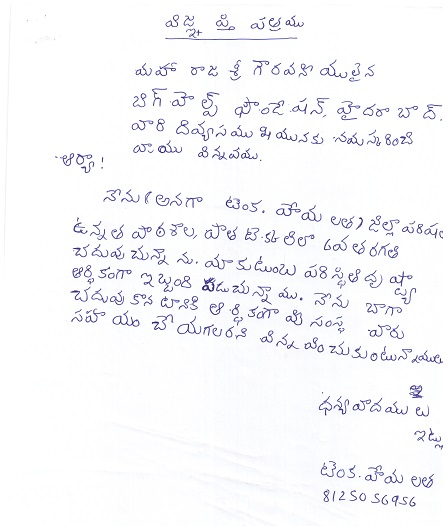 విజ్ఞప్తి పత్రము
మహా రాజ శ్రీ గౌరవనీయులైన
బిగ్ హెల్ప్ ఫౌండేషన్, హైదరాబాద్.
వారి దివ్యసముఖమునకు నమస్కరించి
వ్రాయు విన్నపము.
ఆర్యా!
నేను (అనగా టెంక. హేమలత) జిల్లా పరిషత్
ఉన్నత పాఠశాల, పాత టెక్కలిలో 6వ తరగతి
చదువుచున్నాను. మా కుటుంబ పరిస్థితి దృష్ట్యా
ఆర్థికంగా ఇబ్బంది పడుచున్నాము. నేను బాగా
చదువు కొనటానికి ఆర్థికంగా మీ సంస్థ వారు
సహాయం చేయగలరని విన్నవించుకుంటున్నాము
ధన్యవాదములు
ఇట్లు
టెంక. హేమలత
8125056956